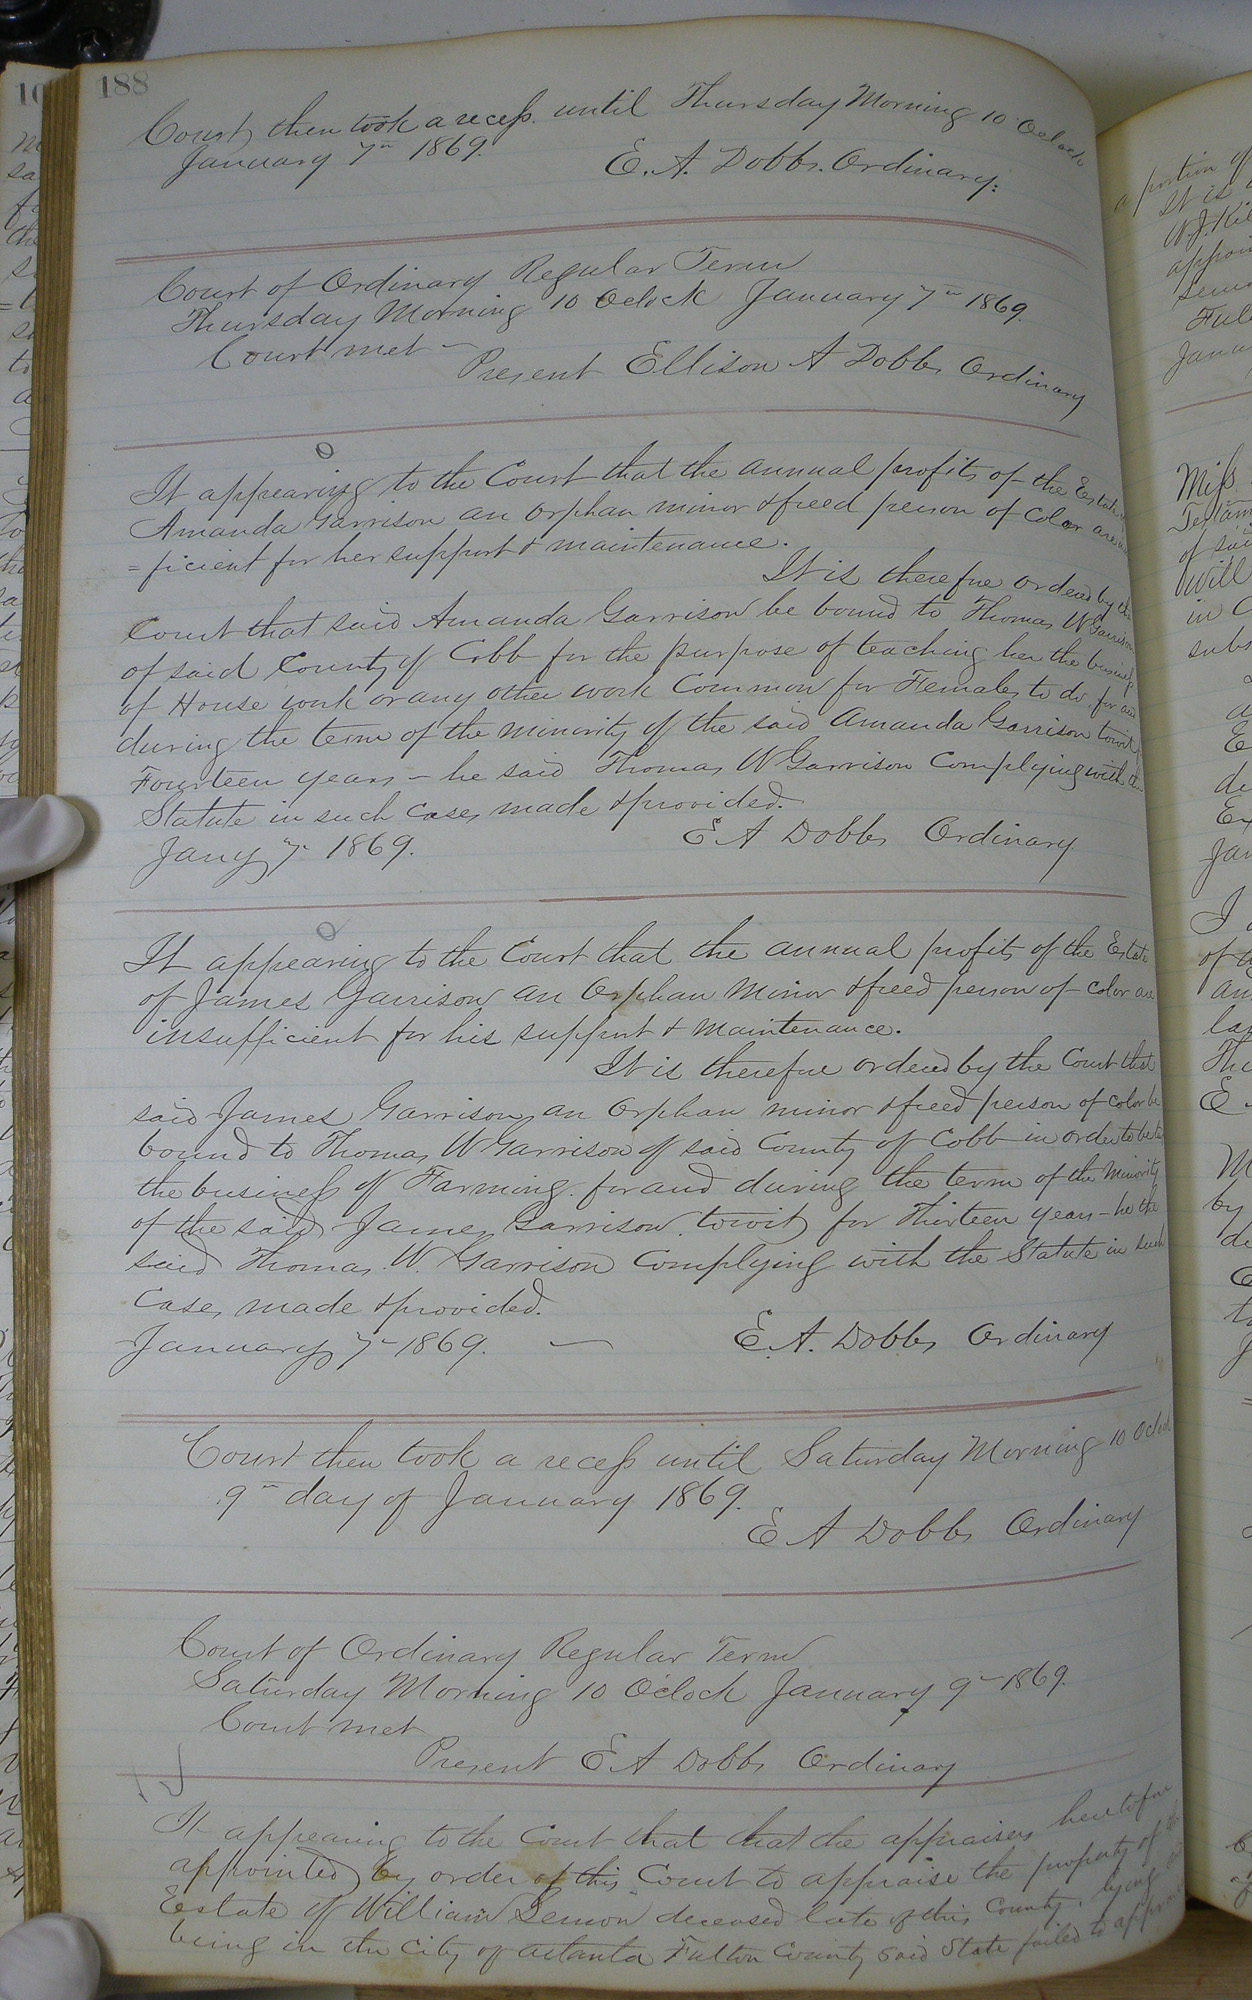 188
Court then took a recess until Thursday Morning 10 Oclock
January 7th 1869.
E. A. Dobbs. Ordinary.
Court of Ordinary Regular Term
Thursday Morning 10 Oclock January 7th 1869.
Court met —
Present Ellison A Dobbs Ordinary
It appearing to the Court that the annual profits of the Estate of
Amanda Garrison an orphan minor & freed person of color are
=ficient for her support & maintenance.
It is therefore ordered by the
Court that said Amanda Garrison be bound to Thomas W Garrison
of said County of Cobb for the purpose of teaching her the business
of House work or any other work Common for Females to do for and
during the term of the minority of the said Amanda Garrison towit
Fourteen years – he said Thomas W Garrison Complying with the
Statute in such Cases made & provided.
Jany 7th 1869.
E A Dobbs Ordinary
It appearing to the Court that the annual profits of the Estate
of James Garrison an Orphan Minor & freed person of color are
insufficient for his support & maintenance.
It is therefore ordered by the Court that
said James Garrison, an orphan minor & freed person of color be
bound to Thomas W Garrison of said County of Cobb in order to be
the business of Farming. for and during the term of the minority
of the said James Garrison. towit for Thirteen years – he the
said Thomas. W. Garrison Complying with the Statute in such
Cases made & provided.
January 7th 1869. —
E. A. Dobbs Ordinary
Court then took a recess until Saturday Morning 10 Oclock
9th day of January 1869.
E A Dobbs Ordinary
Court of Ordinary Regular Term
Saturday Morning 10 O'clock January 9th 1869.
Court met
Present E A Dobbs Ordinary
It appearing to the Court that that the appraisers heretofore
appointed by order of this Court to appraise the property of the
Estate of William Lemon deceased late of this County, lying
being in the City of Atlanta Fulton County said State failed to appraise